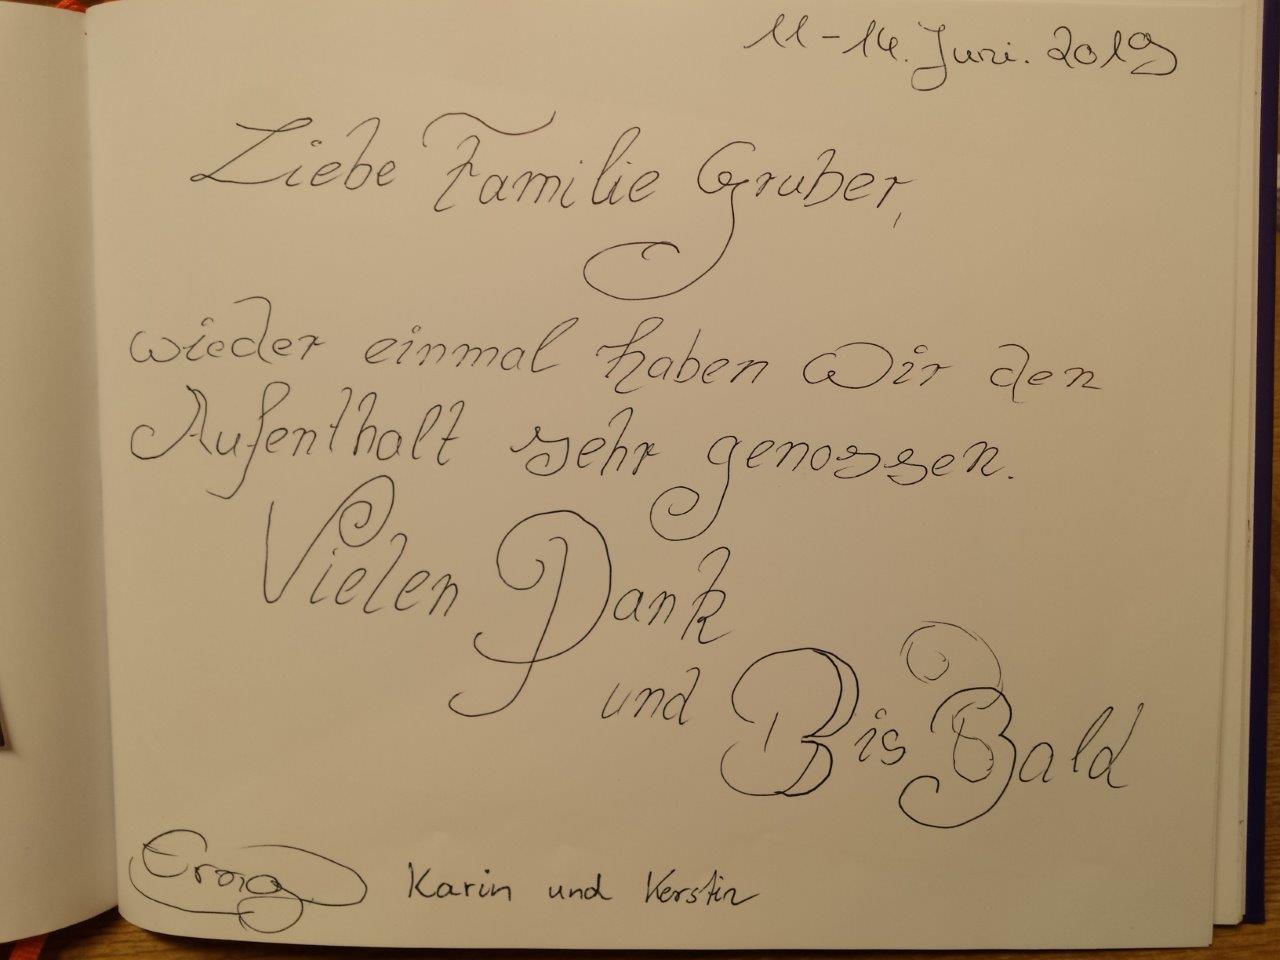 11-14. Juni. 2019
Liebe Familie Gruber,
wieder einmal haben Wir den
Aufenthalt sehr genossen.
Vielen Dank
und Bis Bald
Karin und Kerstin